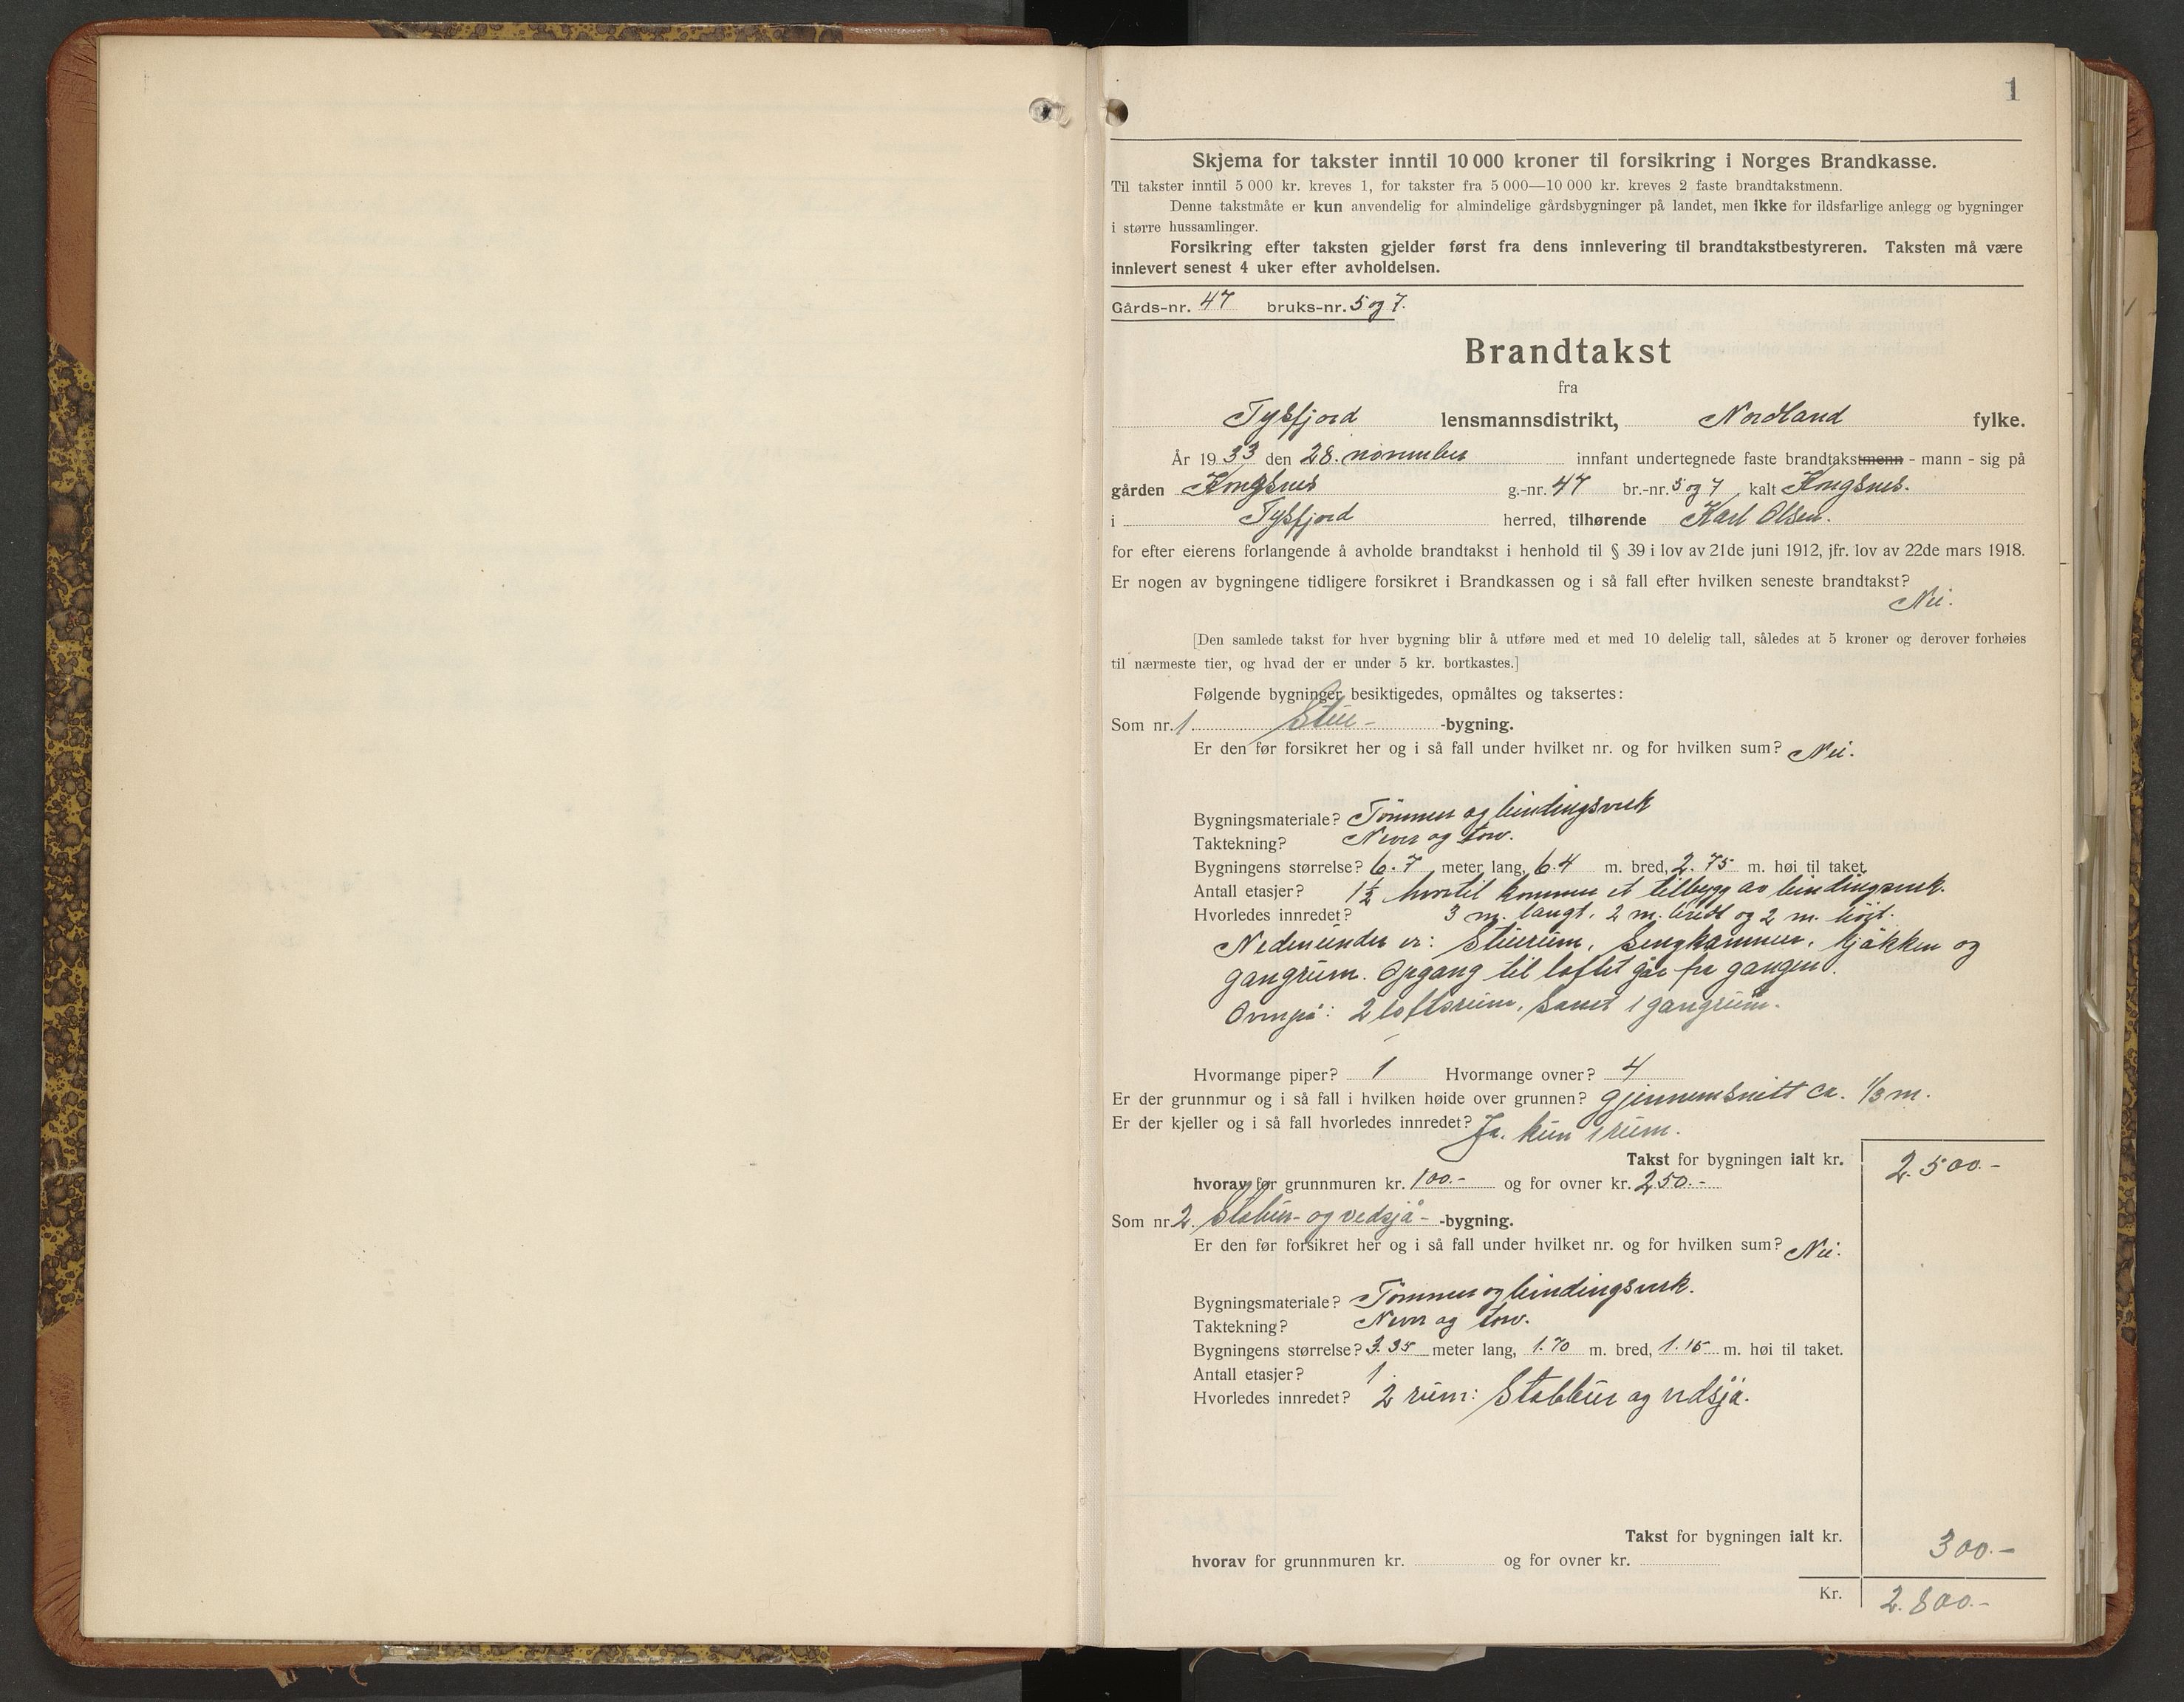 1
Skjema for takster inntil 10 000 kroner til forsikring i Norges Brandkasse.
Til takster inntil 5 000 kr. kreves 1, for takster fra 5 000—10 000 kr. kreves 2 faste brandtakstmenn.
Denne takstmåte er kun anvendelig for almindelige gårdsbygninger på landet, men ikke for ildsfarlige anlegg og bygninger
i større hussamlinger.
Forsikring efter taksten gjelder først fra dens innlevering til brandtakstbestyreren. Taksten må være
innlevert senest 4 uker efter avholdelsen.
Gårds-nr. 47 bruks-nr. 5 og 7.
Brandtakst
fra
Tysfjord lensmannsdistrikt, Nordland fylke.
År 1933 den 28. november innfant undertegnede faste brandtakstmenn - mann - sig på
gården Kongsnes g.-nr. 47 br.-nr. 5 og 7 kalt Kongsnes.
i Tysfjord herred, tilhørende Karl Olsen.
for efter eierens forlangende å avholde brandtakst i henhold til § 39 i lov av 21de juni 1912, jfr. lov av 22de mars 1918.
Er nogen av bygningene tidligere forsikret i Brandkassen og i så fall efter hvilken seneste brandtakst?
Nei.
[Den samlede takst for hver bygning blir å utføre med et med 10 delelig tall, således at 5 kroner og derover forhøies
til nærmeste tier, og hvad der er under 5 kr. bortkastes.]
Følgende bygninger besiktigedes, opmåltes og taksertes:
Som nr. 1. Stue- -bygning.
Er den før forsikret her og i så fall under hvilket nr. og for hvilken sum? Nei.
Bygningsmateriale? Tømmer og bindingsverk
Taktekning? Never og torv.
Bygningens størrelse? 6.7 meter lang, 6.4 m. bred, 2.75 m. høi til taket.
Antall etasjer? 1½ hvortil kommer et tilbygg av bindingsverk.
Hvorledes innredet? 3 m. langt, 2 m. bredt og 2 m. höit.
Nedenunder er: Stuerum, Sengkammer, kjøkken og
gangrum. Opgang til loftet går fra gangen.
Ovenpå: 2 loftsrum, samt 1 gangrum.
Hvormange piper? 1 Hvormange ovner? 4
Er der grunnmur og i så fall i hvilken høide over grunnen? Gjennemsnitt ca. 1/3 m.
Er der kjeller og i så fall hvorledes innredet? Ja. kun 1 rum.
Takst for bygningen ialt kr. 2.500.-
hvorav for grunnmuren kr. 100.- og for ovner kr. 250.-
Som nr. 2. Stabur- og vedsjå- -bygning.
Er den før forsikret her og i så fall under hvilket nr. og for hvilken sum? Nei.
Bygningsmateriale? Tømmer og bindingsverk.
Taktekning? Never og torv.
Bygningens størrelse? 3.35 meter lang, 1.70 m. bred, 1.15 m. høi til taket.
Antall etasjer? 1.
Hvorledes innredet? 2 rum: Stabbur og vedsjå.
Takst for bygningen ialt kr. 300.-
hvorav for grunnmuren kr. og for ovner kr.
Kr. 2.800.-